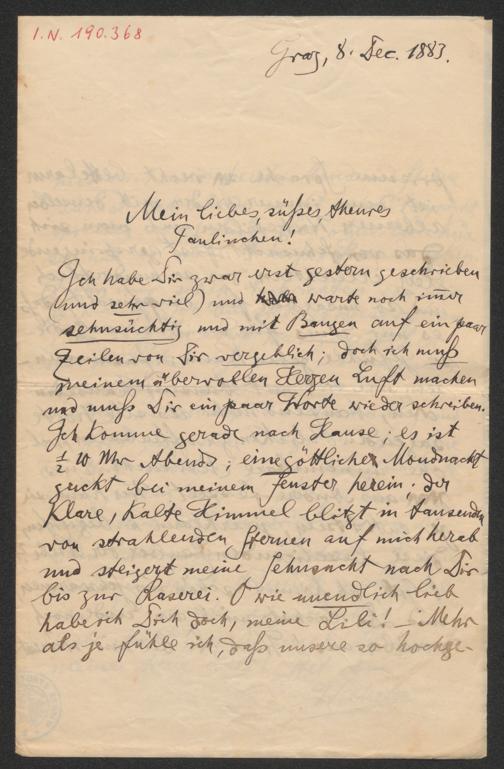 I.N. 190.368
Graz, 8. Dec. 1883.
Mein liebes, süßes, theures
Paulinchen!
Ich habe Dir zwar erst gestern geschrieben
(und sehr viel) und warte noch im̅er
sehnsüchtig und mit Bangen auf ein paar
Zeilen von Dir vergeblich; doch ich muß
meinem übervollen Herzen Luft machen
und muß Dir ein paar Worte wieder schreiben.
Ich komme gerade nach Hause; es ist
½ 10 Uhr Abends; eine göttliche Mondnacht
guckt bei meinem Fenster herein. Der
klare, kalte Himmel blitzt in tausenden
von strahlenden Sternen auf mich herab
und steigert meine Sehnsucht nach Dir
bis zur Raserei. O wie unendlich lieb
habe ich Dich doch, meine Lili! – Mehr
als je fühle ich, daß unsere so hochge-